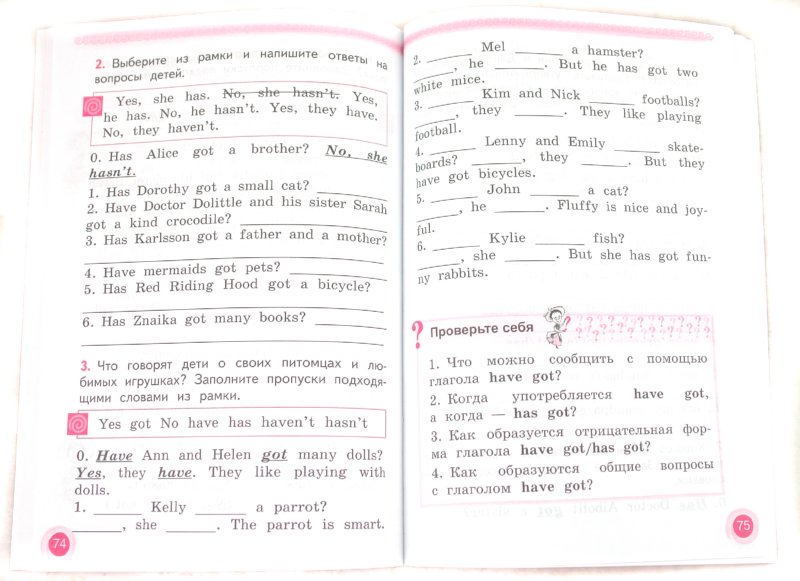 2. Выберите из рамки и напишите ответы на
вопросы детей.
Yes, she has. No, she hasn't. Yes,
he has. No, he hasn't. Yes, they have.
No, they haven't.
0. Has Alice got a brother? No, she
hasn't.
1. Has Dorothy got a small cat? ________
2. Have Doctor Dolittle and his sister Sarah
got a kind crocodile? ________
3. Has Karlsson got a father and a mother?
________
4. Have mermaids got pets? ________
5. Has Red Riding Hood got a bicycle?
________
6. Has Znaika got many books? ________
________
3. Что говорят дети о своих питомцах и лю-
бимых игрушках? Заполните пропуски подходя-
щими словами из рамки.
Yes got No have has haven't hasn't
0. Have Ann and Helen got many dolls?
Yes, they have. They like playing with
dolls.
1. ______ Kelly ______ a parrot?
______, she ______. The parrot is smart.
74
2. ______ Mel ______ a hamster?
______, he ______. But he has got two
white mice.
3. ______ Kim and Nick ______ footballs?
______, they ______. They like playing
football.
4. ______ Lenny and Emily ______ skate-
boards? ______, they ______. But they
have got bicycles.
5. ______ John ______ a cat?
______, he ______. Fluffy is nice and joy-
ful.
6. ______ Kylie ______ fish?
______, she ______. But she has got fun-
ny rabbits.
? Проверьте себя
1. Что можно сообщить с помощью
глагола have got?
2. Когда употребляется have got,
а когда — has got?
3. Как образуется отрицательная фор-
ма глагола have got/has got?
4. Как образуются общие вопросы
с глаголом have got?
75